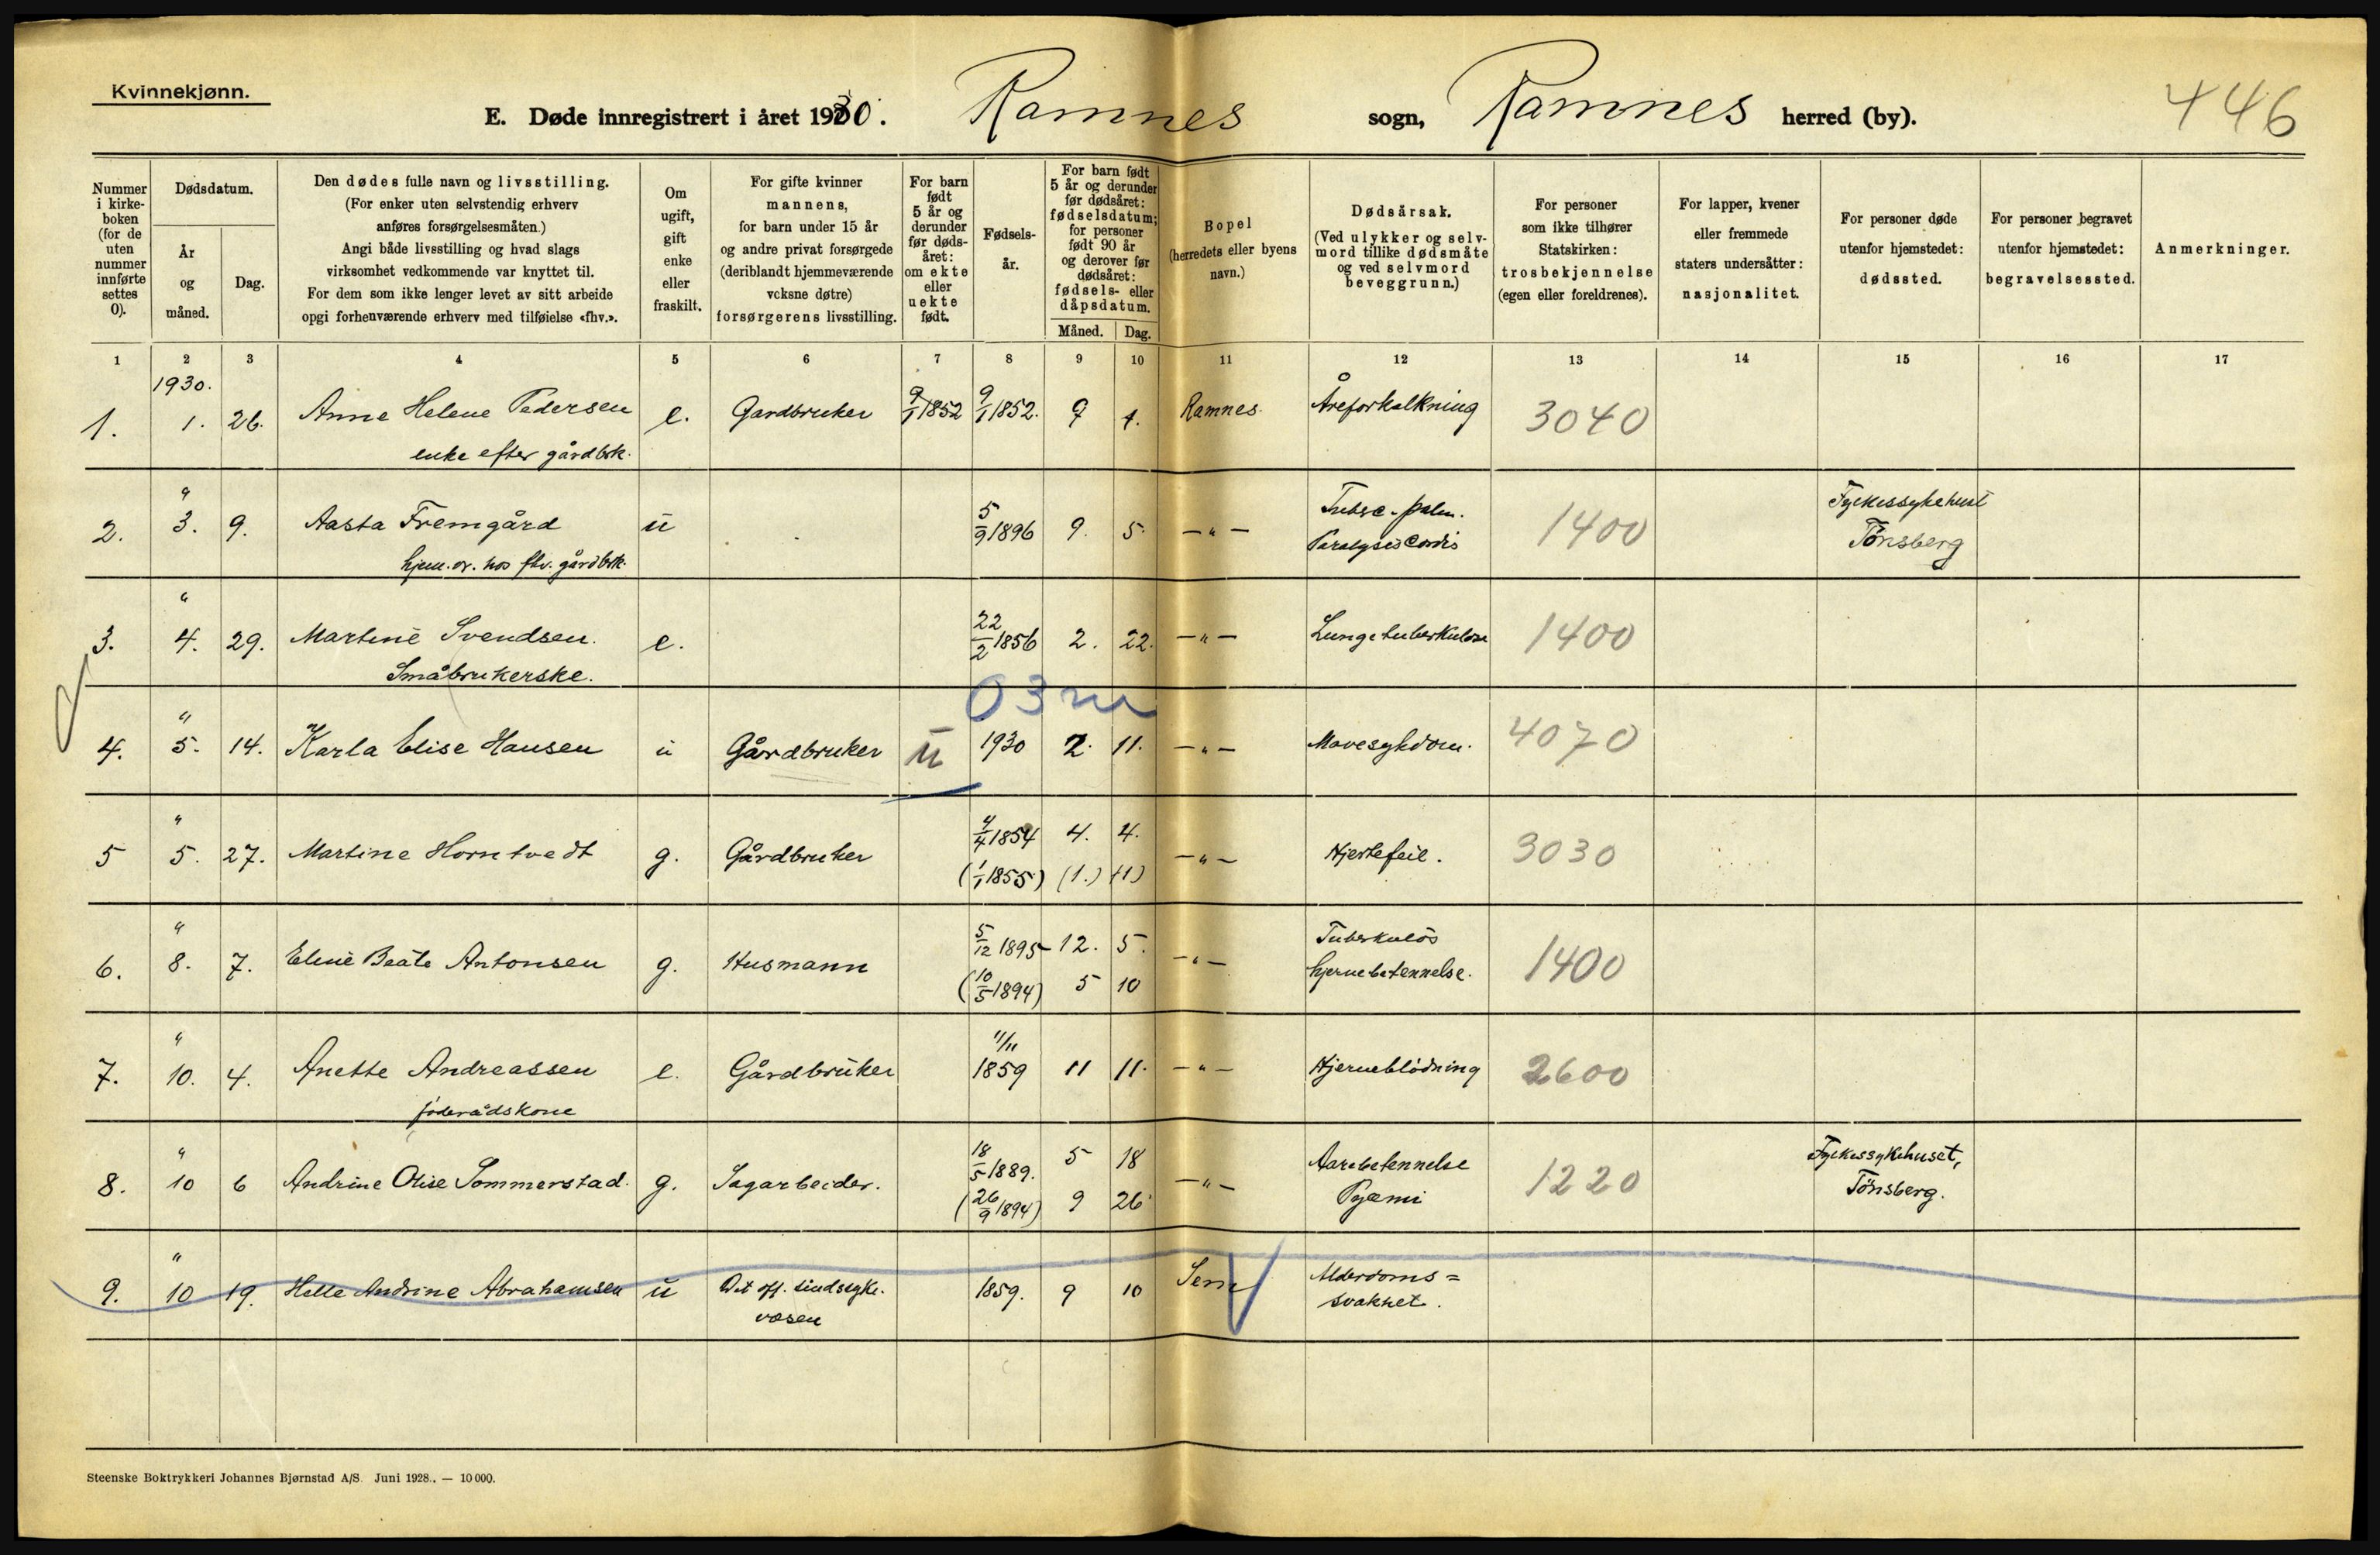 Kvinnekjønn.
E. Døde innregistrert i året 1930. Ramnes sogn, Ramnes herred (by).
446
Nummer i kirke-boken (for de uten nummer innførte settes 0).
Dødsdatum.
År og måned.
Dag.
Den dødes fulle navn og livsstilling.
(For enker uten selvstendig erhverv
anføres forsørgelsesmåten.)
Angi både livsstilling og hvad slags
virksomhet vedkommende var knyttet til.
For dem som ikke lenger levet av sitt arbeide
opgi forhenværende erhverv med tilføielse «fhv.».
Om ugift, gift enke eller fraskilt.
For gifte kvinner
mannens,
for barn under 15 år
og andre privat forsørgede
(deriblandt hjemmeværende
voksne døtre)
forsørgerens livsstilling.
For barn født 5 år og derunder før døds-året: om ekte eller uekte født.
Fødsels-år.
For barn født 5 år og derunder før dødsåret: fødselsdatum; for personer født 90 år og derover før dødsåret: fødsels- eller dåpsdatum.
Måned. Dag.
Bopel
(herredets eller byens
navn.)
Dødsårsak.
(Ved ulykker og selv-
mord tillike dødsmåte
og ved selvmord
beveggrunn.)
For personer
som ikke tilhører
Statskirken:
trosbekjennelse
(egen eller foreldrenes).
For lapper, kvener
eller fremmede
staters undersåtter:
nasjonalitet.
For personer døde
utenfor hjemstedet:
dødssted.
For personer begravet
utenfor hjemstedet:
begravelsessted.
Anmerkninger.
1 2 3 4 5 6 7 8 9 10 11 12 13 14 15 16 17
1930.
1. 1. 26. Anne Helene Pedersen e. Gardbruker 9/1 1852 9/1 1852. 9 1. Ramnes. Åreforkalkning 3040
enke efter gårdbrk.
"
2. 3. 9. Aasta Fremgård u 5/9 1896 9. 5. —"— Tuberc. pulm. 1400 Fylkessykehuset
hjem.v. hos fhv. gårdbrk. Paralysis Cordis Tønsberg
"
3. 4. 29. Martine Svendsen. e. 22/2 1856 2. 22. —"— Lungetuberkulose 1400
Småbrukerske.
03m
"
4. 5. 14. Karla Elise Hansen u Gårdbruker u 1930 2. 11. —"— Mavesykdom. 4070
"
5 5. 27. Martine Horntvedt g. Gårdbruker 4/4 1854 4. 4. —"— Hjertefeil. 3030
(1/1 1855) (1.) (1)
"
6. 8. 7. Eline Beate Antonsen g. Husmann 5/12 1895 12. 5. —"— Tuberkuløs 1400
(10/5 1894) 5 10 hjernebetennelse.
"
7. 10. 4. Anette Andreassen e. Gårdbruker 11/11 1859 11 11. —"— Hjerneblødning 2600
föderådskone
"
8. 10 6 Andrine Olise Sommerstad. g. Sagarbeider. 18/5 1889. 5 18 —"— Aarebetennelse 1220 Fylkessykehuset,
(26/9 1894) 9 26 Pyæmi Tønsberg.
"
9. 10 19. Helle Andrine Abrahamsen u Det off. sindssyke- 1859. 9 10 Sem Alderdoms=
vesen svakhet.
Steenske Boktrykkeri Johannes Bjørnstad A/S. Juni 1928. — 10 000.